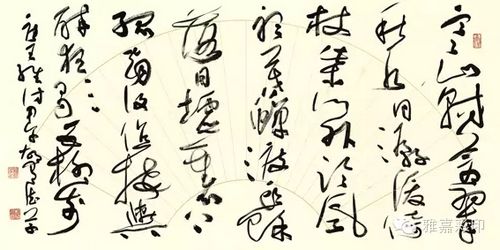 寒山轉蒼翠
秋水日潺湲倚
杖柴門外臨風
聽暮蟬渡頭餘
落日墟里上
孤煙復值接輿
醉狂歌五柳前
唐王維詩甲午
雅嘉彩印